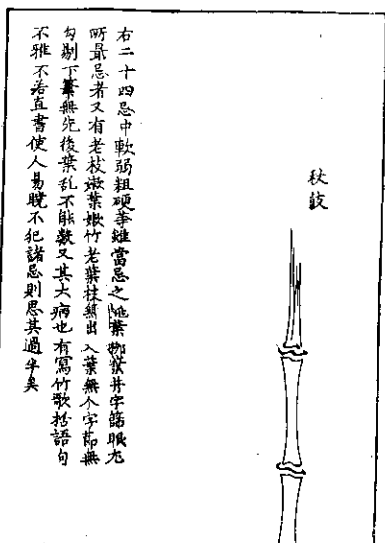 秋鼓
右二十四忌中軟弱粗硬筆雖當忌之桃葉柳葉井字篩眼尤
所最忌者又有老枝嫩葉嫩竹老葉枝無出入葉無个字節無
勾剔下筆無先後葉乱不能數又其大病也有寫竹歌括語句
不雅不若直書使人易曉不犯諸忌則思其過半矣